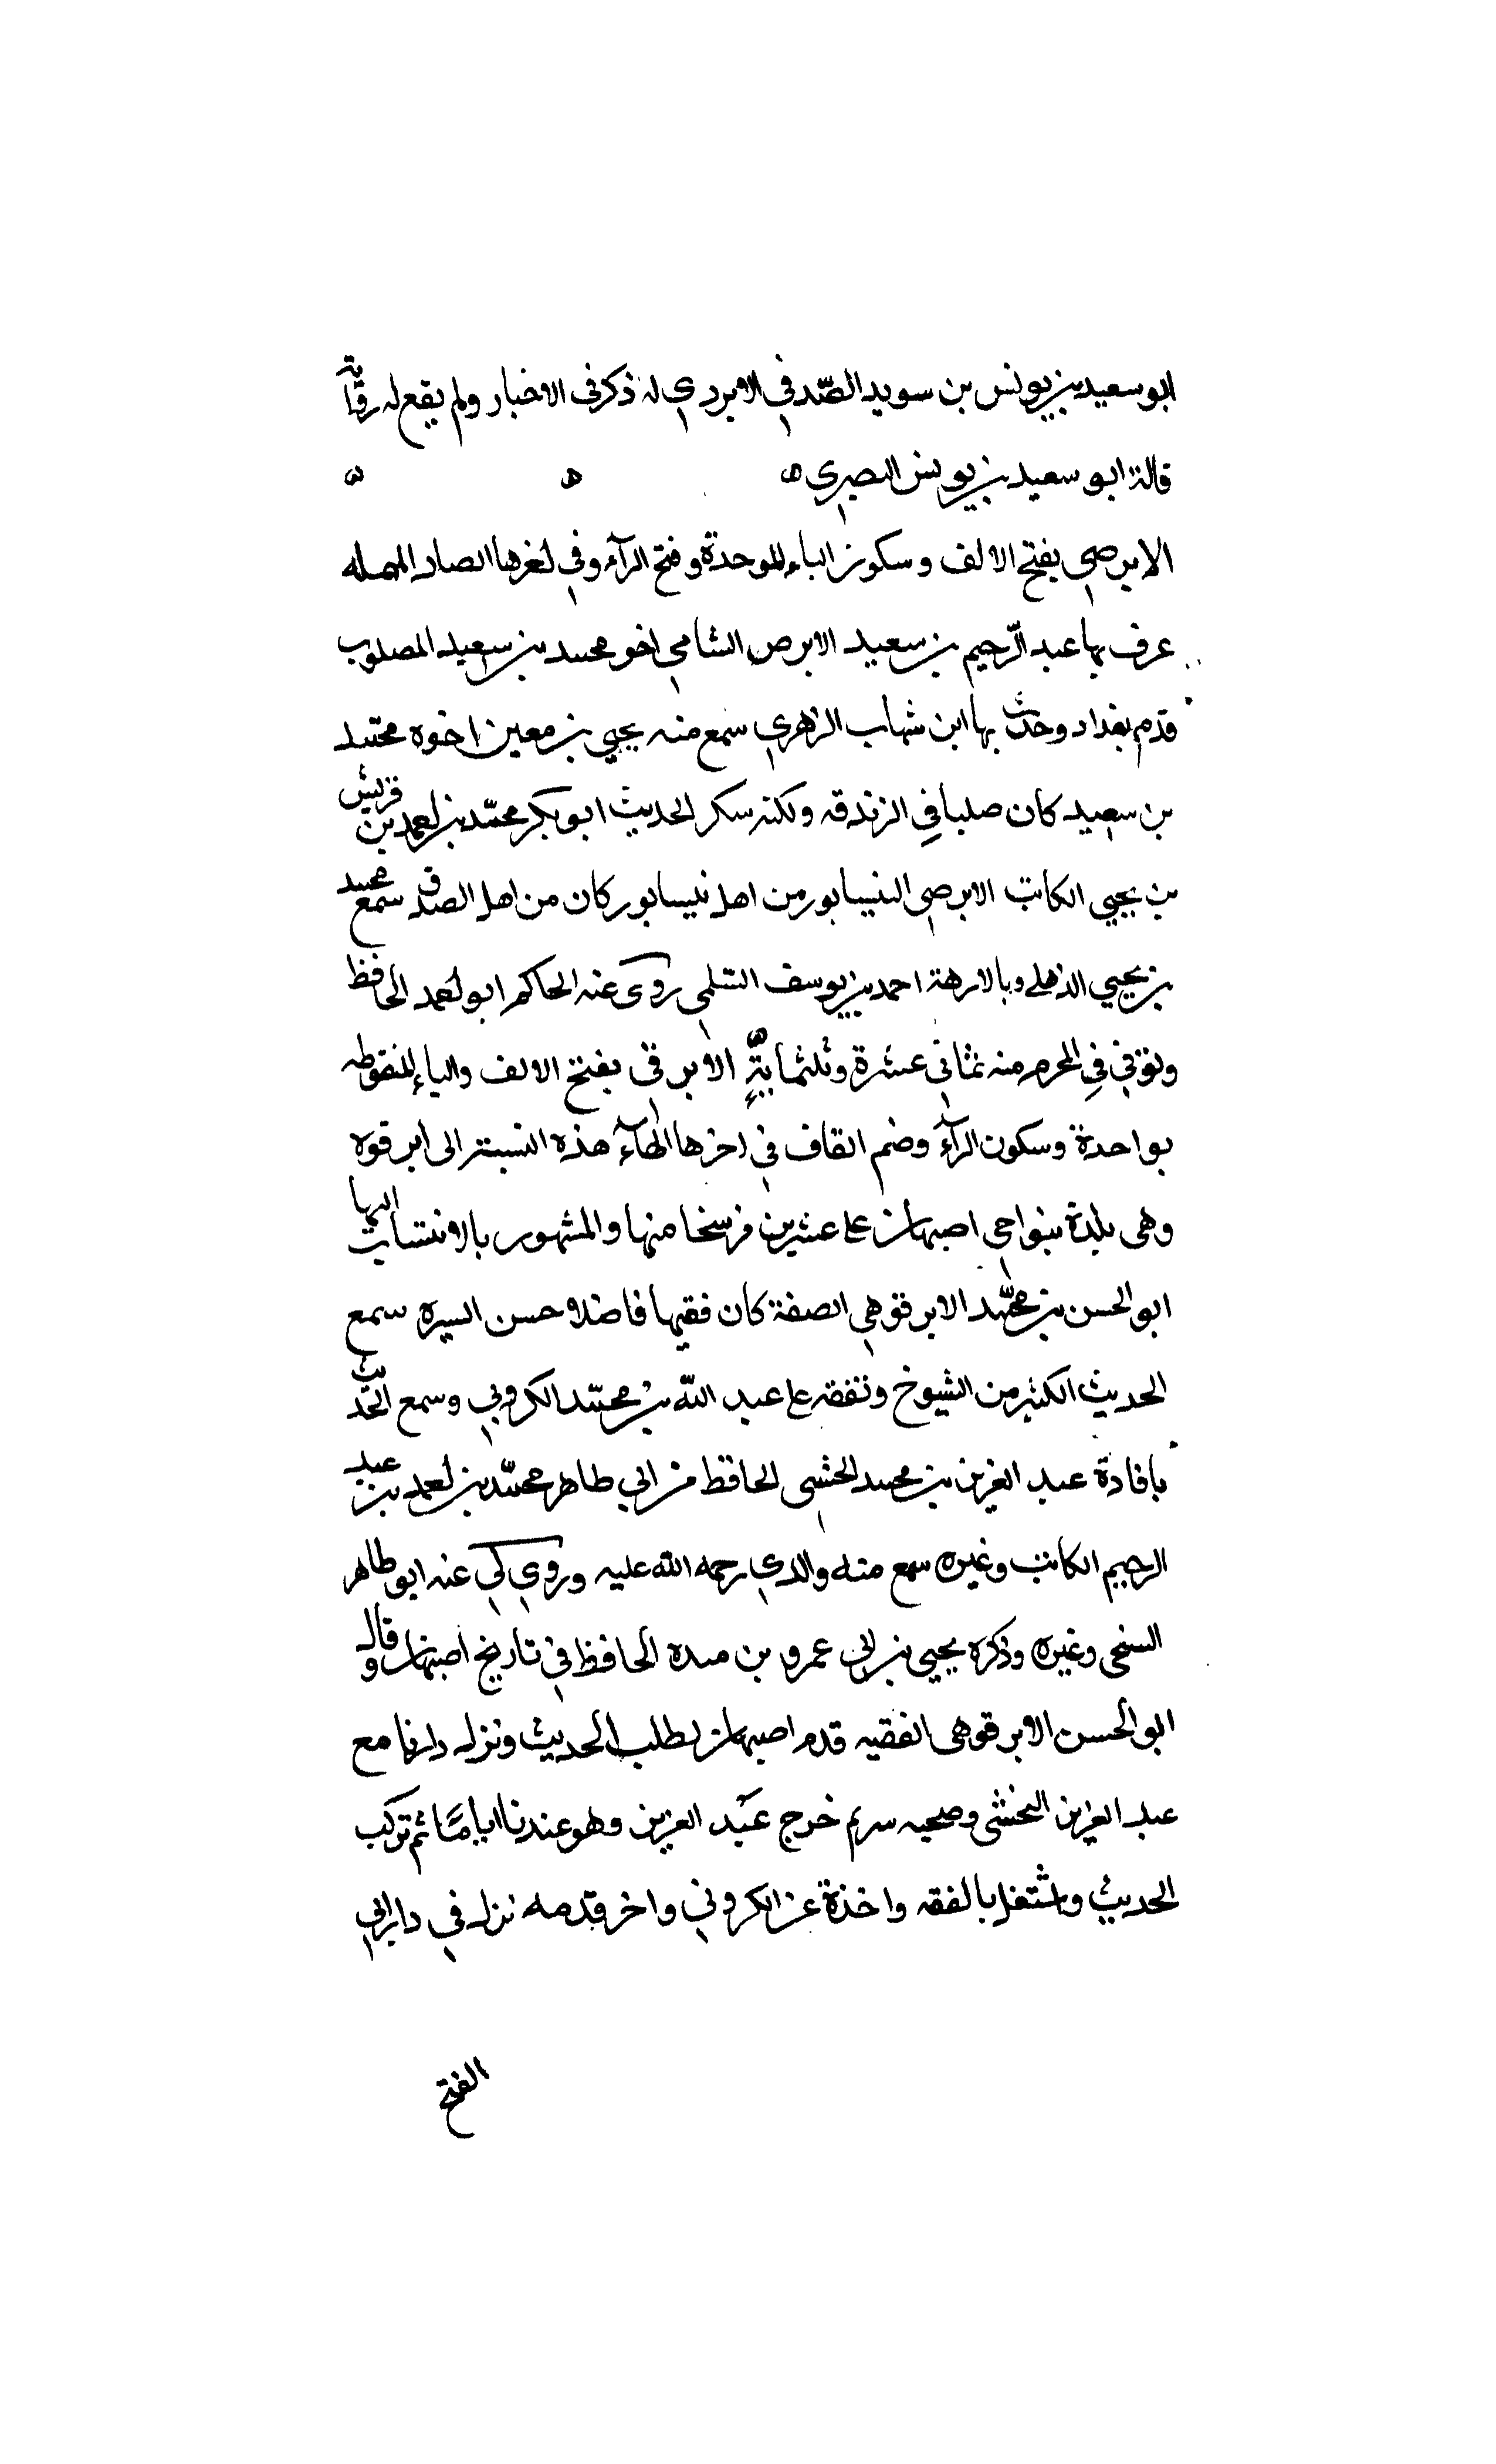 ابو سعيد بن يونس بن سويد الصّدفي الابردي له ذكر فى الاخبار ولم يقع له رواية
قالة ابو سعيد بن يونس البصري
الابرصي بفتح الالف وسكون الباء الموحدة وفتح الرآء وفي اخرها الصاد المهمله
عرف بها عبد الرّحيم بن سعيد الابرص الشامي اخو محمد بن سعيد المصلوب
قدم بغداد وحدث بها ابن شهاب الزهري سمع منه يحيي بن معين اخوه محمّد
بن سعيد كان صلبا في الزندقه ولكنه سكر الحديث ابو بكر محمّد بن احمد بن قريش
بن يحيي الكاتب الابرصي النيسابور من اهل نيسابور كان من اهل الصدق سمع محمد
بن يحيي الذهلي وبالارهة احمد بن يوسف السّلمي روى عنه الحاكم ابو احمد الحافظ
وتوفي في المحرم منه ثماني عشرة وثلثماية الابر قى بفتح الالف والباء المنقوطه
بواحدة وسكون الرآء وضم القاف في اخرها الهآء هذه النسبة الى ابر قوه
وهى بلدة بنواحي اصبهان على عشرين فرسخا منها والمشهور بالانتساب اليها
ابو الحسن بن محمّد الابر قوهي الصفة كان فقيها فاضلا حسن السيره سمع
الحديث الكثير من الشيوخ وتفقه على عبد اللّه بن محمّد الكروني وسمع الحديث
بافادة عبد العزيز بن محمد الخشبي الحافظ من ابي طاهر محمّد بن احمد بن عبد
الرحيم الكاتب وغيره سمع منه والدي رحمه الله عليه وروي لي عنه ابو طاهر
السنجي وغيره وذكره يحيي بن ابي عمرو بن منده الحافظ في تاريخ اصبهان وقال
ابو الحسن الابر قوهى الفقيه قدم اصبهان لطلب الحديث ونزل دارنا مع
عبد العزيز النخشي وصحبه سريم خرج عبد العزيز وهو عندنا اياما ثم ترك
الحديث واشتغل بالفقه واخذة عن الكروني واخر قدمه نزل في دار ابي
الفتح